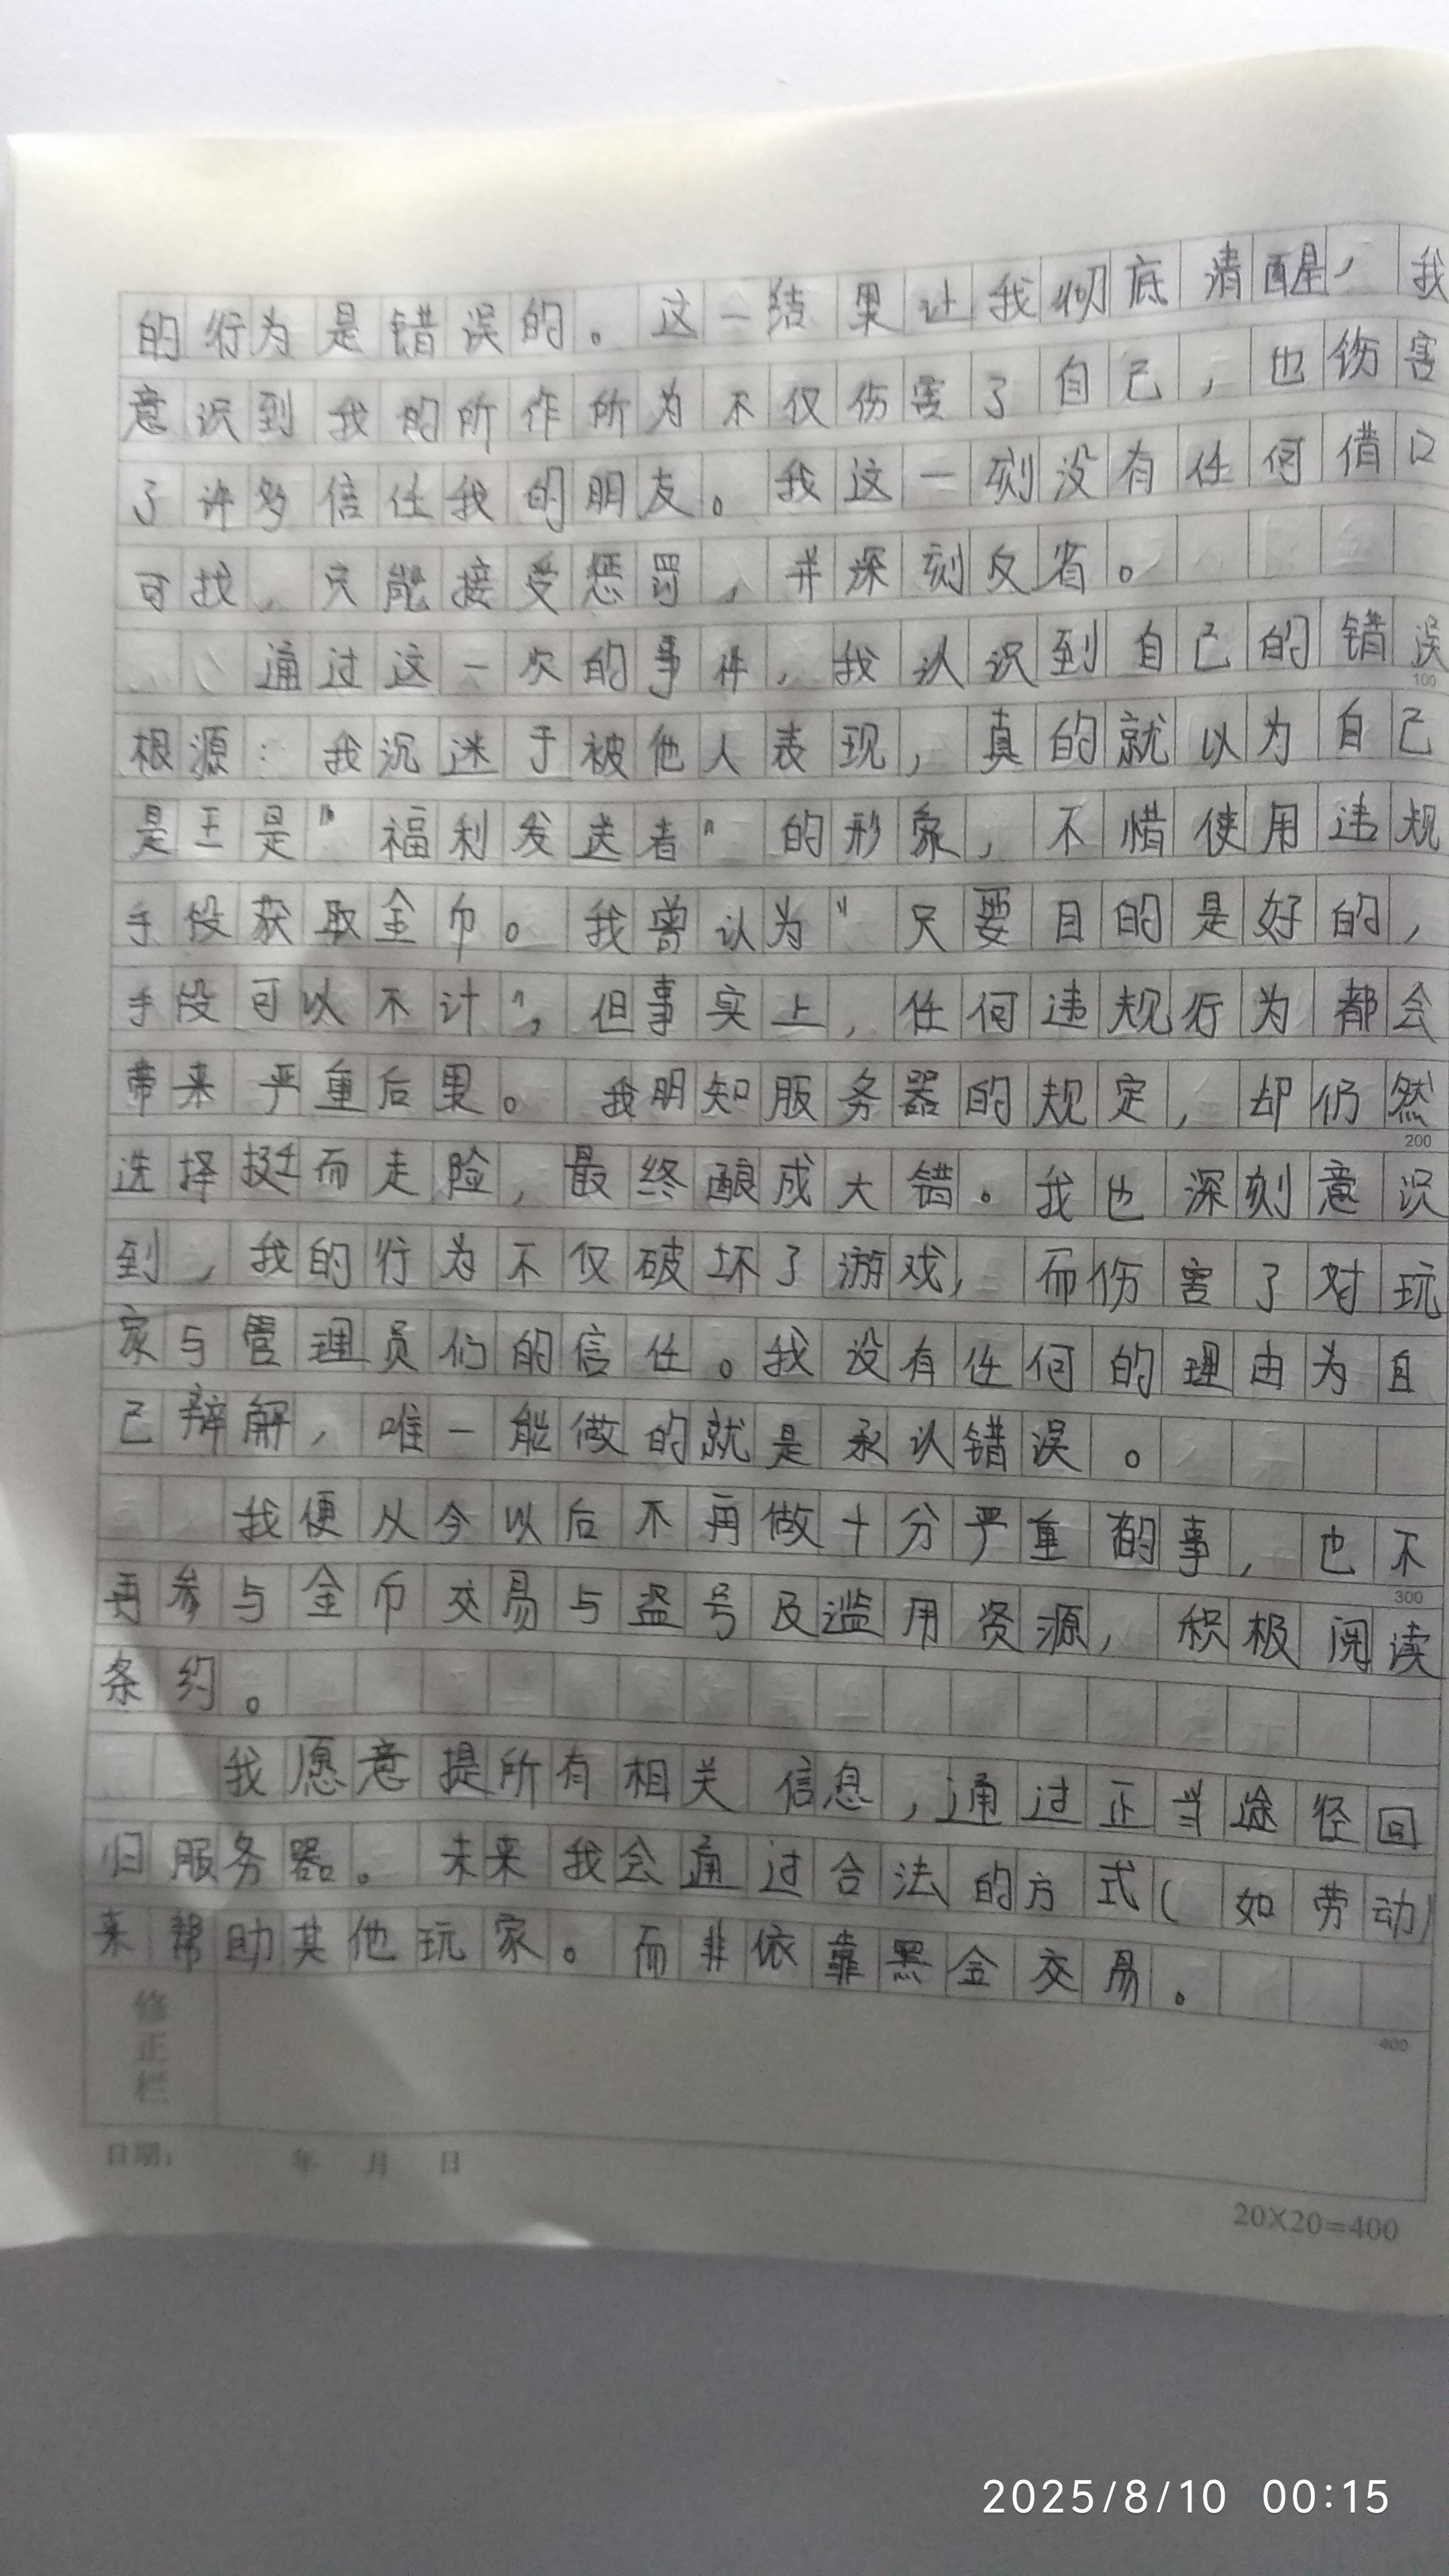 的行为是错误的。这一结果让我彻底清醒，我
意识到我的所作所为不仅伤害了自己，也伤害
了许多信任我的朋友。我这一刻没有任何借口
可找，只能接受惩罚，并深刻反省。
通过这一次的事件，我认识到自己的错误
100
根源：我沉迷于被他人表现，真的就以为自己
是王是“福利发送者”的形象，不惜使用违规
手段获取金币。我曾认为“只要目的是好的，
手段可以不计”，但事实上，任何违规行为都会
带来严重后果。我明知服务器的规定，却仍然
200
选择挺而走险，最终酿成大错。我也深刻意识
到，我的行为不仅破坏了游戏，而伤害了对玩
家与管理员们的信任。我没有任何的理由为自
己辩解，唯一能做的就是承认错误。
我便从今以后不再做十分严重的事，也不
300
再参与金币交易与盗号及滥用资源，积极阅读
条约。
我愿意提所有相关信息，通过正当途径回
归服务器。未来我会通过合法的方式（如劳动）
来帮助其他玩家。而非依靠黑金交易。
400
修正栏
日期： 年 月 日
20X20=400
2025/8/10 00:15